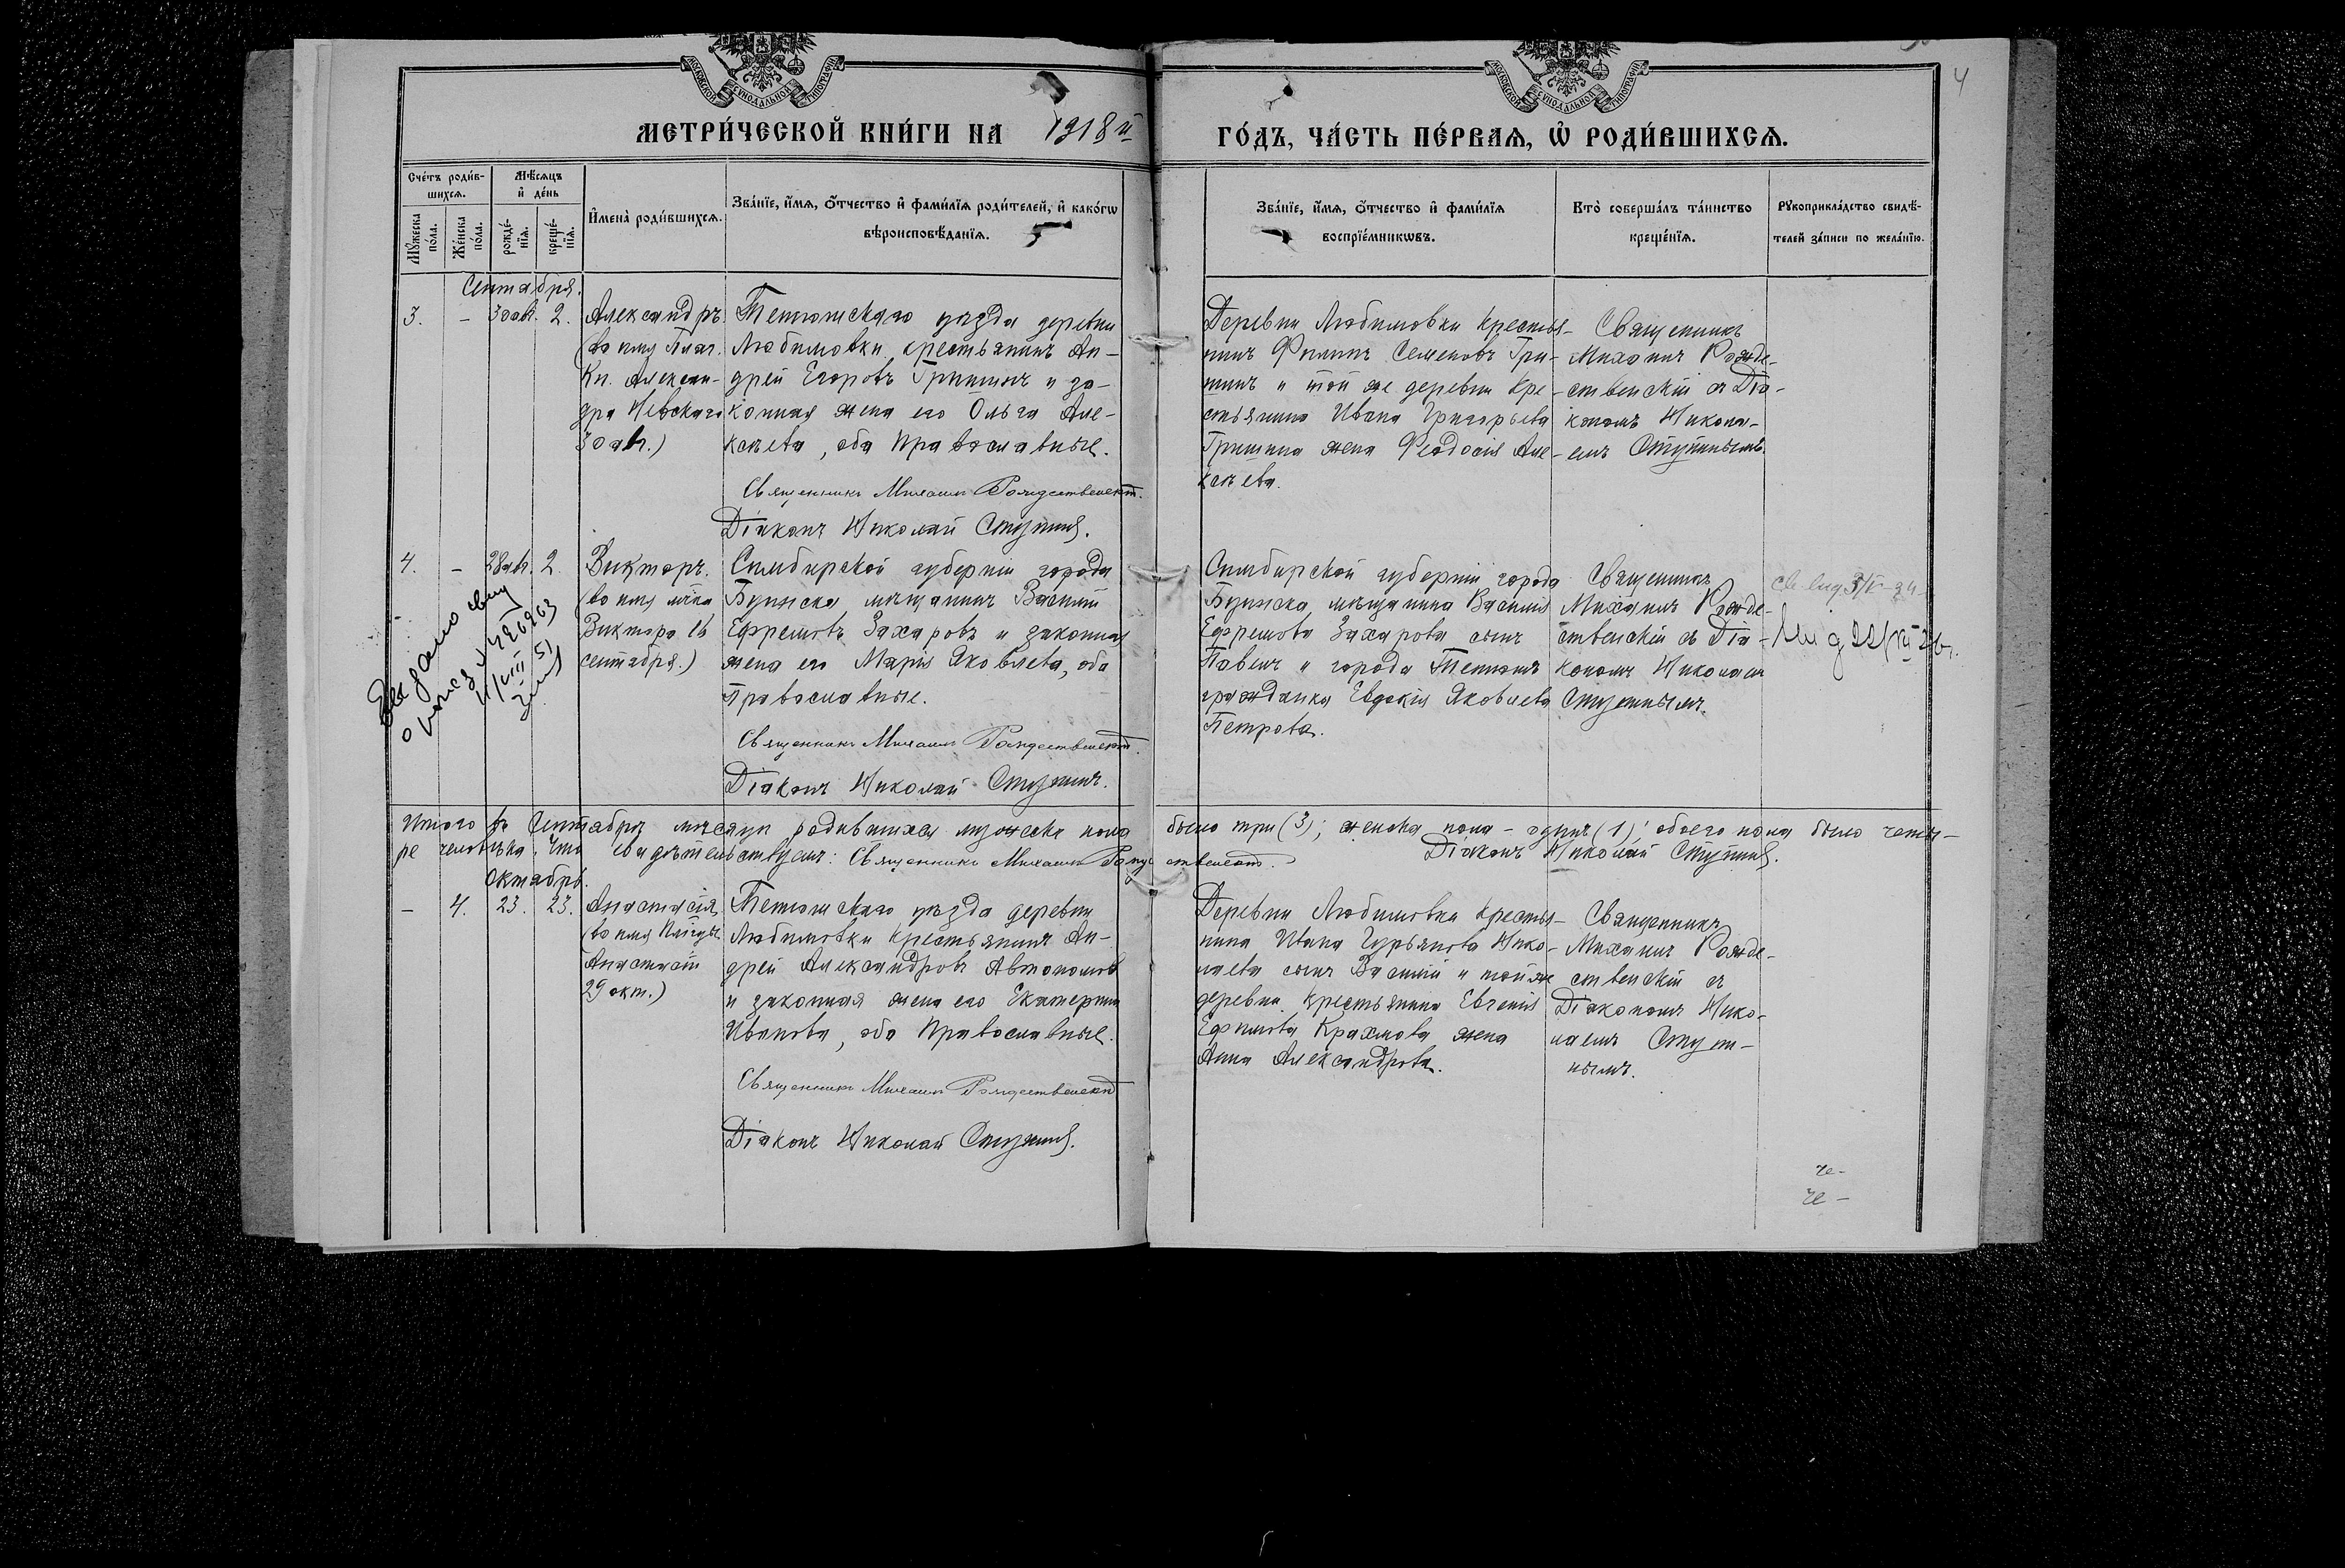 4
МОСКОВСКОЙ СѴНОДАЛЬНОЙ ТИПОГРАФІИ
МОСКОВСКОЙ СѴНОДАЛЬНОЙ ТИПОГРАФІИ
МЕТРИ́ЧЕСКОЙ КНИ́ГИ НА 1918 й
ГО́ДЪ, ЧА́СТЬ ПЕ́РВАѦ, Ѡ҆ РОДИ́ВШИХСѦ.
Сче́тъ роди́в-
шихсѧ.
Мꙋ́жеска
пола.
Же́нска
по́ла.
Мѣ́сѧцъ
и҆ де́нь
рожде́-
нїѧ.
креще́-
нїѧ.
И҆мена̀ роди́вшихсѧ.
Зва́нїе, и҆́мѧ, ѻ҆́тчество и҆ фами́лїѧ роди́телей, и҆ како́гѡ
вѣроисповѣ́данїѧ.
Зва́нїе, и҆́мѧ, ѻ҆́тчество и҆ фами́лїѧ
воспрїе́мникѡвъ.
Кто̀ соверша́лъ та́инство
креще́нїѧ.
Рꙋкоприкла́дство свидѣ́-
телей за́писи по жела́нїю.
Сентября.
3.
-
30 авг.
2.
Александръ
(во имя Благ.
Кн. Алексан-
дра Невскаго
30 авг.)
Тетюшскаго уѣзда деревни
Любимовки крестьянинъ Ан-
дрей Егоровъ Гришинъ и за-
конная жена его Ольга Але-
ксѣева, оба православные.
Священникъ Михаилъ Рождественскій.
Діаконъ Николай Ступинъ.
Деревни Любимовки крестья-
нинъ Филиппъ Семеновъ Гри-
шинъ и той же деревни кре-
стьянина Ивана Григорьева
Гришина жена Феодосія Але-
ксѣева.
Священникъ
Михаилъ Рожде-
ственскій съ Діа-
кономъ Никола-
емъ Ступинымъ.
4.
-
28 авг.
2.
Викторъ.
(во имя мчка
Виктора 16
сентября.)
Симбирской губерніи города
Буинска мѣщанинъ Василій
Ефремовъ Захаровъ и законная
жена его Марія Яковлева, оба
православные.
Священникъ Михаилъ Рождественскій.
Діаконъ Николай Ступинъ.
Симбирской губерніи города
Буинска мѣщанина Василія
Ефремова Захарова сынъ
Павелъ и города Тетюшъ
гражданка Евдокія Яковлева
Петрова.
Священникъ
Михаилъ Рожде-
ственскій съ Діа-
кономъ Николаемъ
Ступинымъ.
свид
о
11/VIII 51
Итого въ Сентябрѣ мѣсяцѣ родившихся мужеска пола было три (3); женска пола - одинъ (1); обоего пола было четы-
ре человѣка. Что свидѣтельствуемъ: Священникъ Михаилъ Рождественскій. Діаконъ Николай Ступинъ.
Октябрь.
-
4.
23.
23.
Анастасія
(во имя
Анастасіи
29 окт.)
Тетюшскаго уѣзда деревни
Любимовки крестьянинъ Ан-
дрей Александровъ Автономовъ
и законная жена его Екатерина
Иванова, оба православные.
Священникъ Михаилъ Рождественскій
Діаконъ Николай Ступинъ.
Деревни Любимовки крестья-
нина Ивана Гурьянова Нико-
лаева сынъ Василій и той же
деревни крестьянина Евгенія
Ефимова Крахмова жена
Анна Александрова.
Священникъ
Михаилъ Рожде-
ственскій съ
Діакономъ Нико-
лаемъ Ступи-
нымъ.
че-
че-